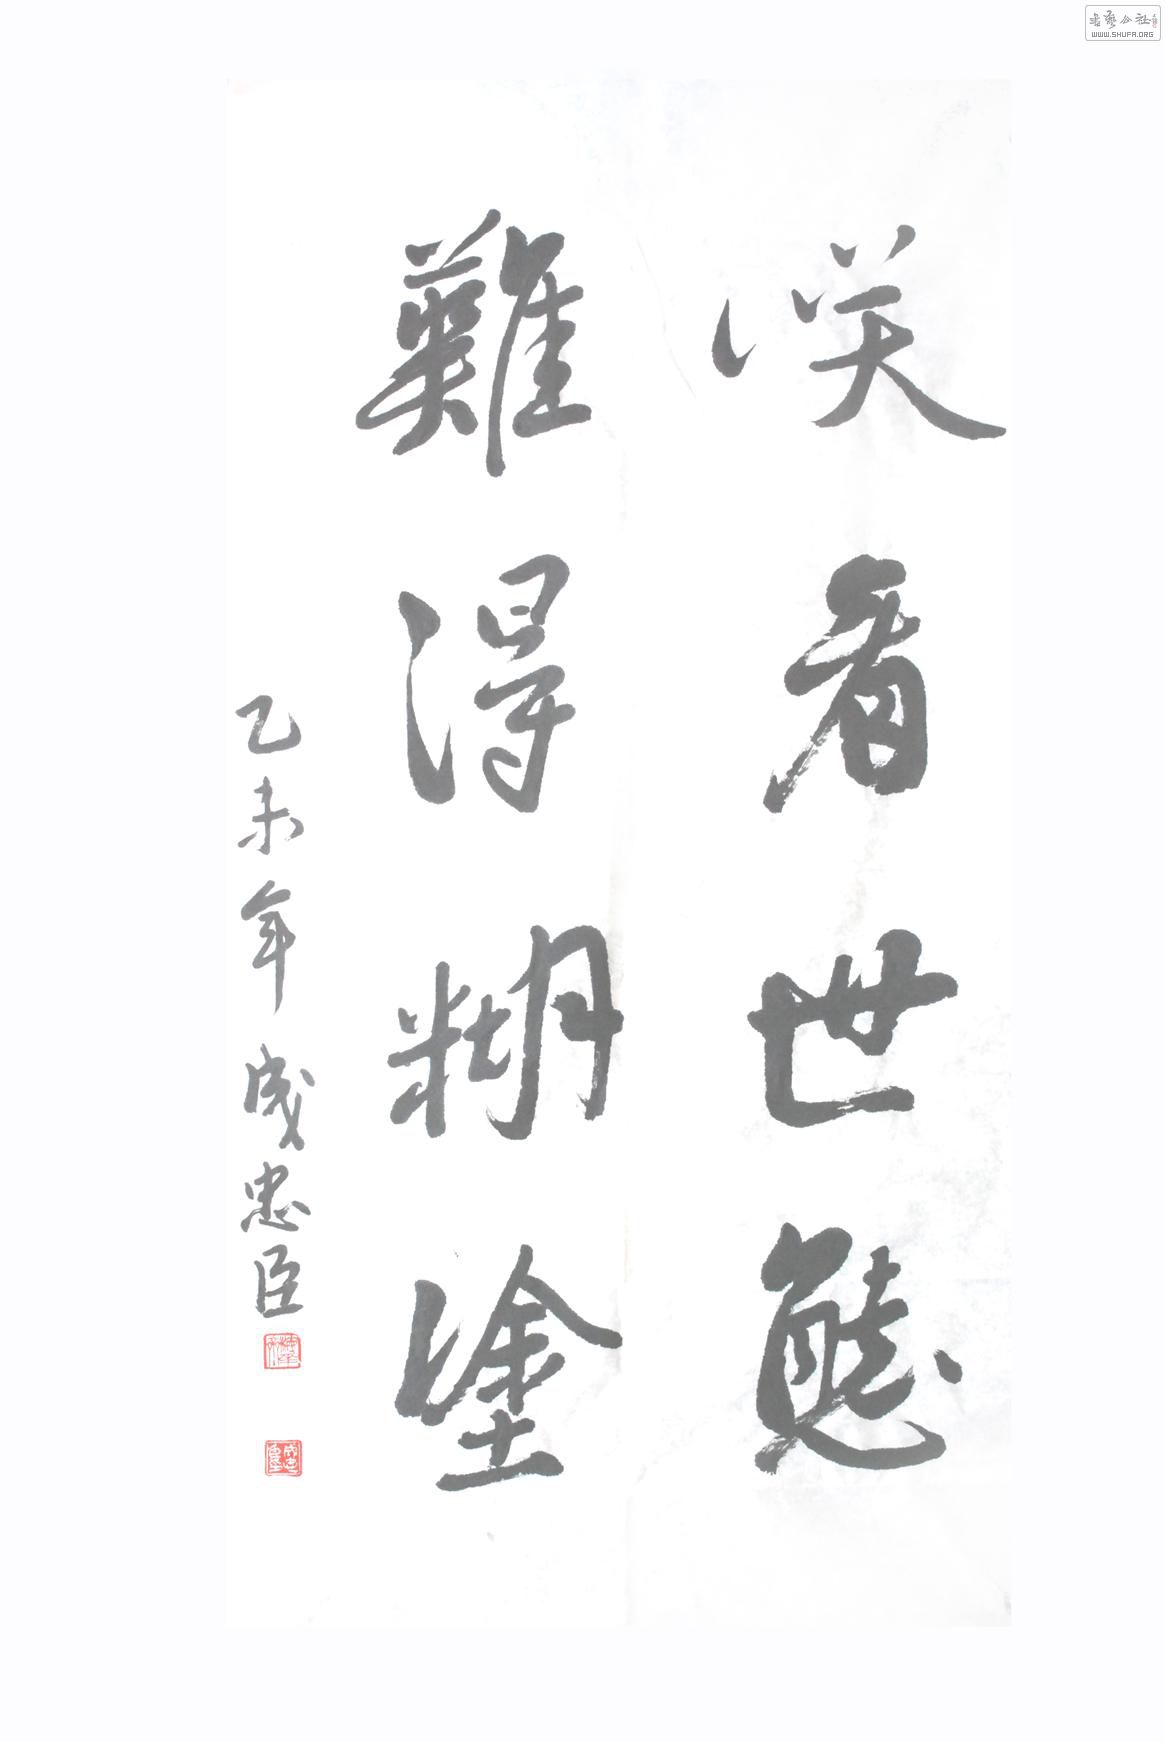 咲看世態
難得糊塗
乙未年成忠臣
書藝公社
WWW.SHUFA.ORG